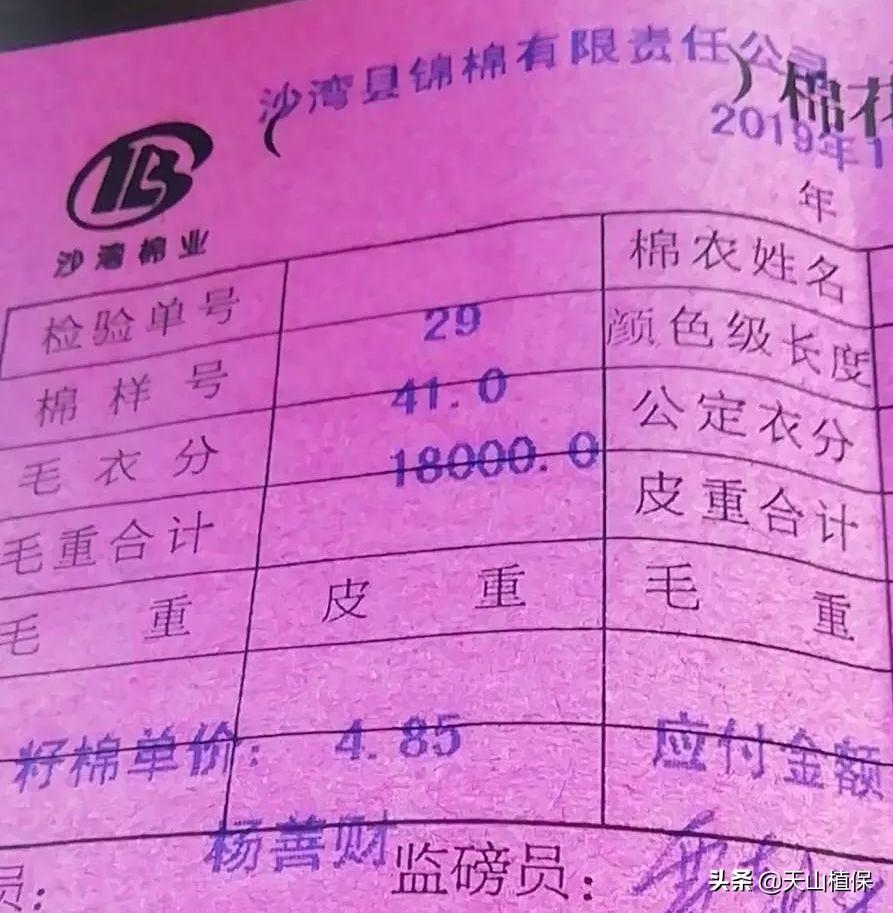 沙湾县锦棉有限责任公司
( ) 棉花
2019年1
沙湾棉业
年
棉农姓名
检验单号 29 颜色级长度
棉样号 41.0 公定衣分
毛衣分 18000.0 皮重合计
毛重合计
毛重 皮重 毛重
籽棉单价: 4.85 应付金额
杨善财
员: 监磅员:
头条 @天山植保